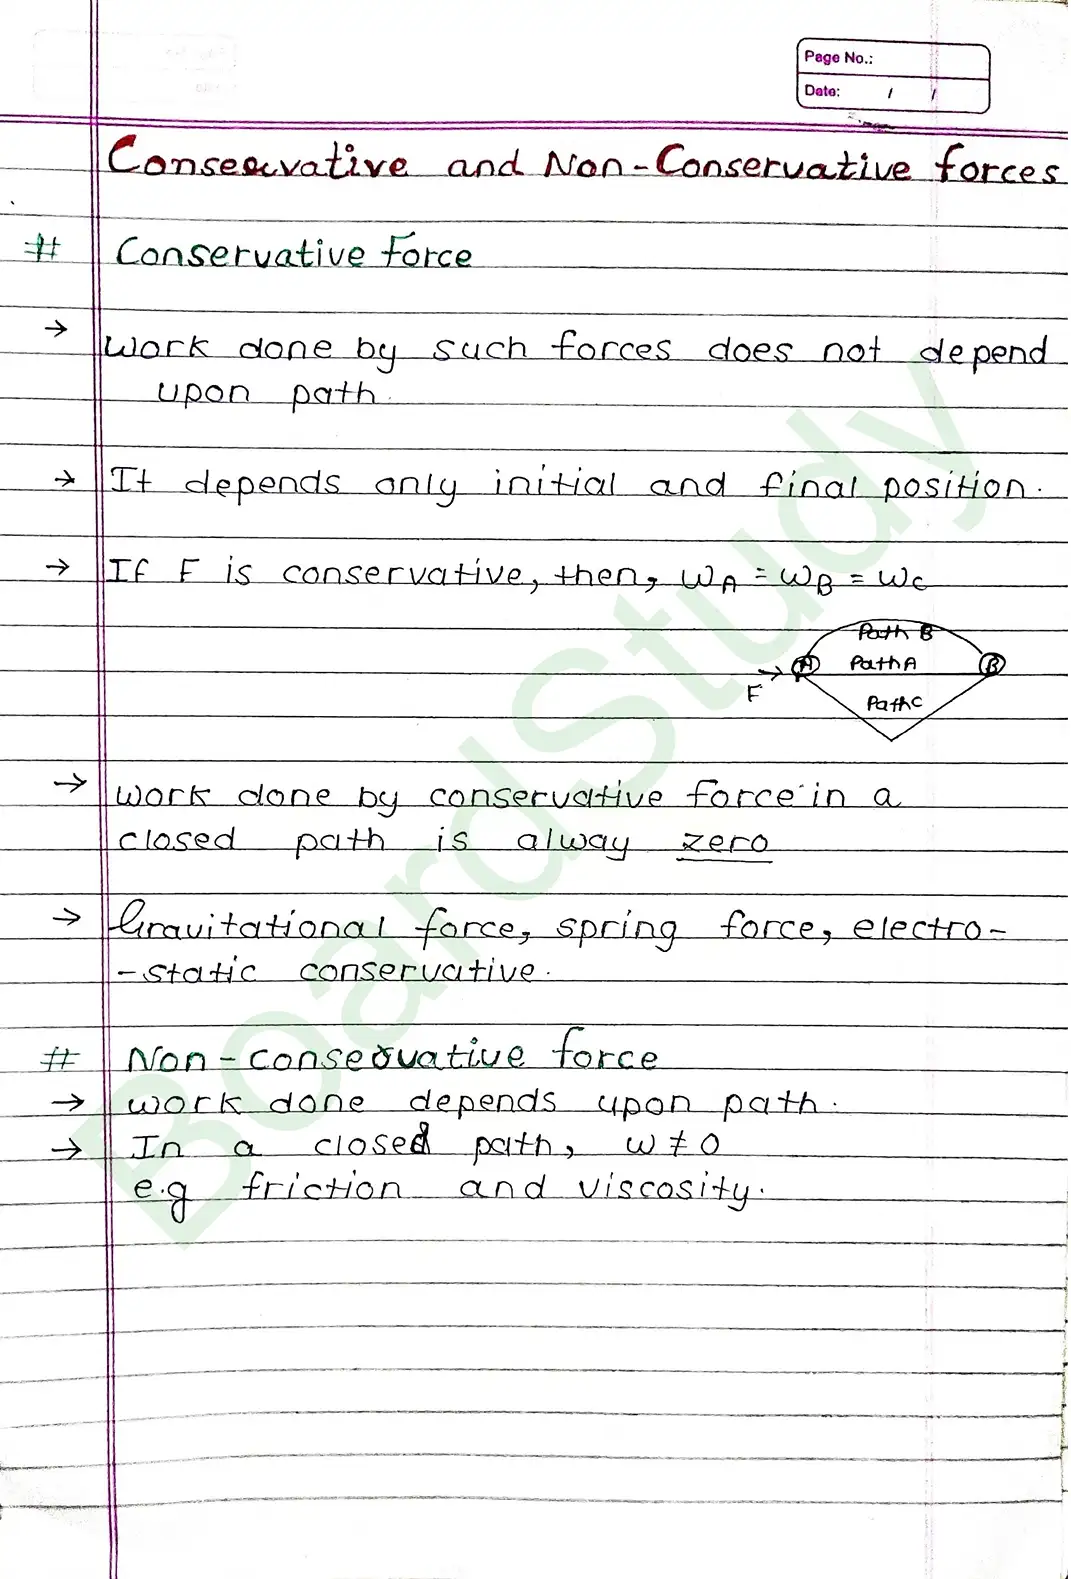 Page No.:
Date: / /
Conservative and Non-Conservative forces
# Conservative force
→ Work done by such forces does not depend
upon path.
→ It depends only initial and final position.
→ If F is conservative, then, WA = WB = WC
Path B
A Path A B
F
Path C
→ Work done by conservative force in a
closed path is alway zero
→ Gravitational force, spring force, electro-
-static conservative.
# Non-conservative force
→ work done depends upon path.
→ In a closed path, W ≠ 0
e.g friction and viscosity.
BoardStudy